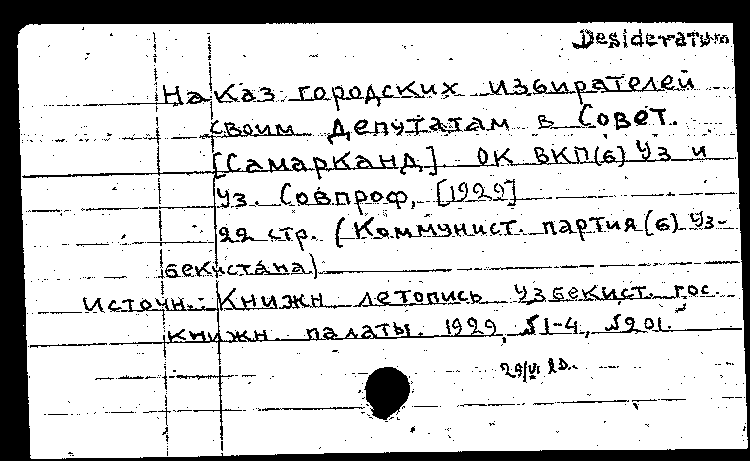 Desideratum
Наказ городских избирателей
своим депутатам в Совет.
[Самарканд] ОК ВКП(б) Уз и
Уз. Совпроф, [1929]
22 стр. (Коммунист. партия(б) Уз-
бекистана)
Источн.: Книжн летопись Узбекист. гос.
книжн. палаты. 1929, №1-4, №201.
29/VI